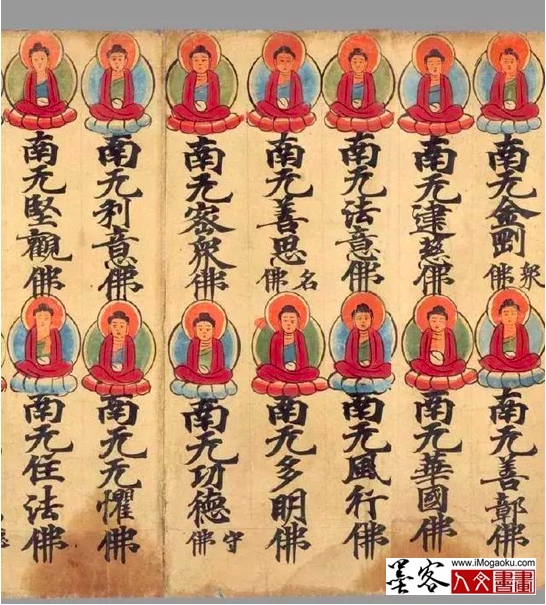 南无金剛衆佛
南无建慈佛
南无法意佛
南无善思名佛
南无密衆佛
南无利意佛
南无堅觀佛
南无善鄣佛
南无華國佛
南无風行佛
南无多明佛
南无功德守佛
南无无懼佛
南无住法佛
墨客
www.iMogaoku.com
人文書畫